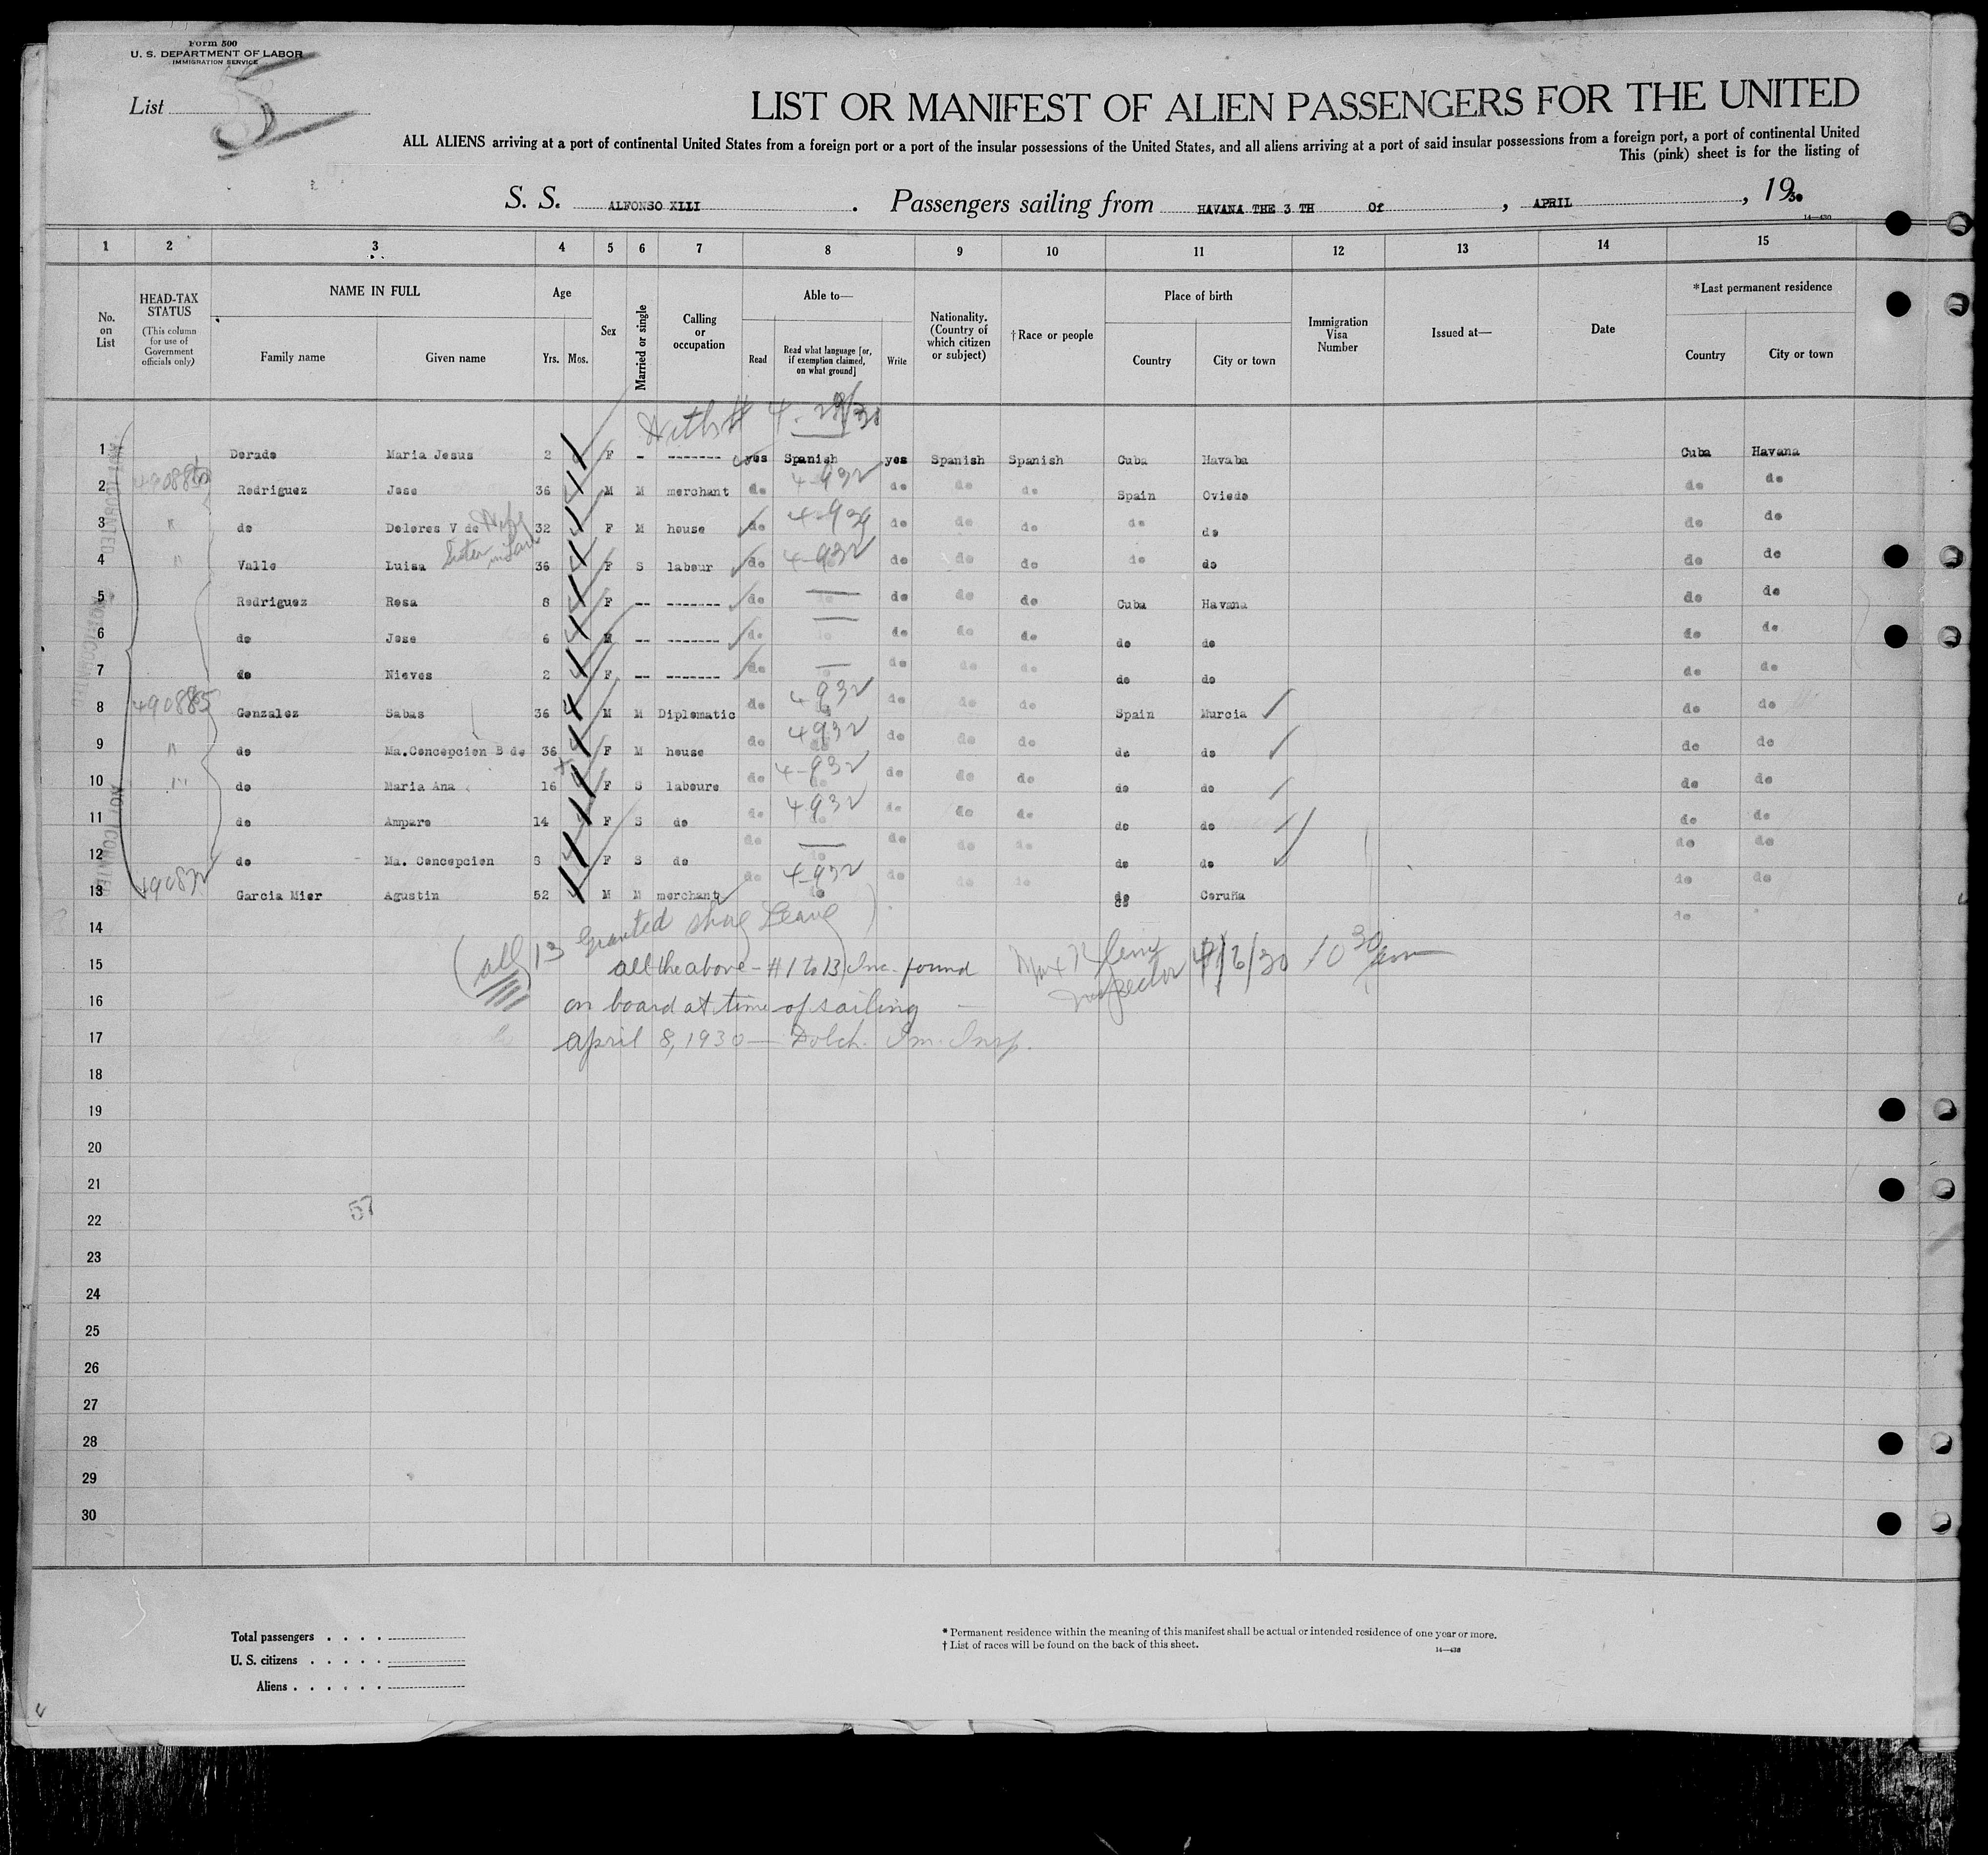 Form 500
U. S. DEPARTMENT OF LABOR
IMMIGRATION SERVICE
List 5
LIST OR MANIFEST OF ALIEN PASSENGERS FOR THE UNITED
ALL ALIENS arriving at a port of continental United States from a foreign port or a port of the insular possessions of the United States, and all aliens arriving at a port of said insular possessions from a foreign port, a port of continental United
This (pink) sheet is for the listing of
S. S. ALFONSO XLLI . Passengers sailing from HAVANA THE 3 TH Of , APRIL , 1930
14—430
1 2 3 4 5 6 7 8 9 10 11 12 13 14 15
No. on List
HEAD-TAX STATUS (This column for use of Government officials only)
NAME IN FULL
Family name Given name
Age
Yrs. Mos.
Sex
Married or single
Calling or occupation
Able to—
Read
Read what language [or, if exemption claimed, on what ground]
Write
Nationality. (Country of which citizen or subject)
†Race or people
Place of birth
Country City or town
Immigration Visa Number
Issued at—
Date
*Last permanent residence
Country City or town
4-29/30
1 Dorado Maria Jesus 2 F - ------- yes Spanish yes Spanish Spanish Cuba Havaba Cuba Havana
2 490885 Rodriguez Jose 36 M M merchant do 4-932 do do do Spain Oviedo do do
3 " do Dolores V de Wife 32 F M house do do do do do do do do
4 " Valle Luisa Sister in Law 36 F S labour do 4-932 do do do do do do do
5 Rodriguez Rosa 8 F -- ------- do do do do do Cuba Havana do do
6 do Jose 6 M -- ------- do do do do do do do do do
7 do Nieves 2 F -- ------- do do do do do do do do
8 490885 Gonzalez Sabas 36 M M Diplomatic do 4932 do do do Spain Murcia do do
9 " do Ma.Concepcion B de 36 F M house do 4932 do do do do do do do do
10 " do Maria Ana 16 F S labours do 4-932 do do do do do do do do
11 do Amparo 14 F S do do 4932 do do do do do do do do
12 do Ma. Concepcion 8 F S do do do do do do do do do do
13 49087 Garcia Mier Agustin 52 M M merchant do 4-932 do do do do do Coruña do do
14 do
(all) 13 Granted Shore Leave
15 all the above - #1 to 13 Inc. found Inspector 4/6/30 10 30 am
16 on board at time of sailing
17 april 8, 1930 — Dolch. Im. Insp.
18
19
20
21
57
22
23
24
25
26
27
28
29
30
Total passengers . . . .
U. S. citizens . . . . .
Aliens . . . . . .
* Permanent residence within the meaning of this manifest shall be actual or intended residence of one year or more.
† List of races will be found on the back of this sheet.
14—430